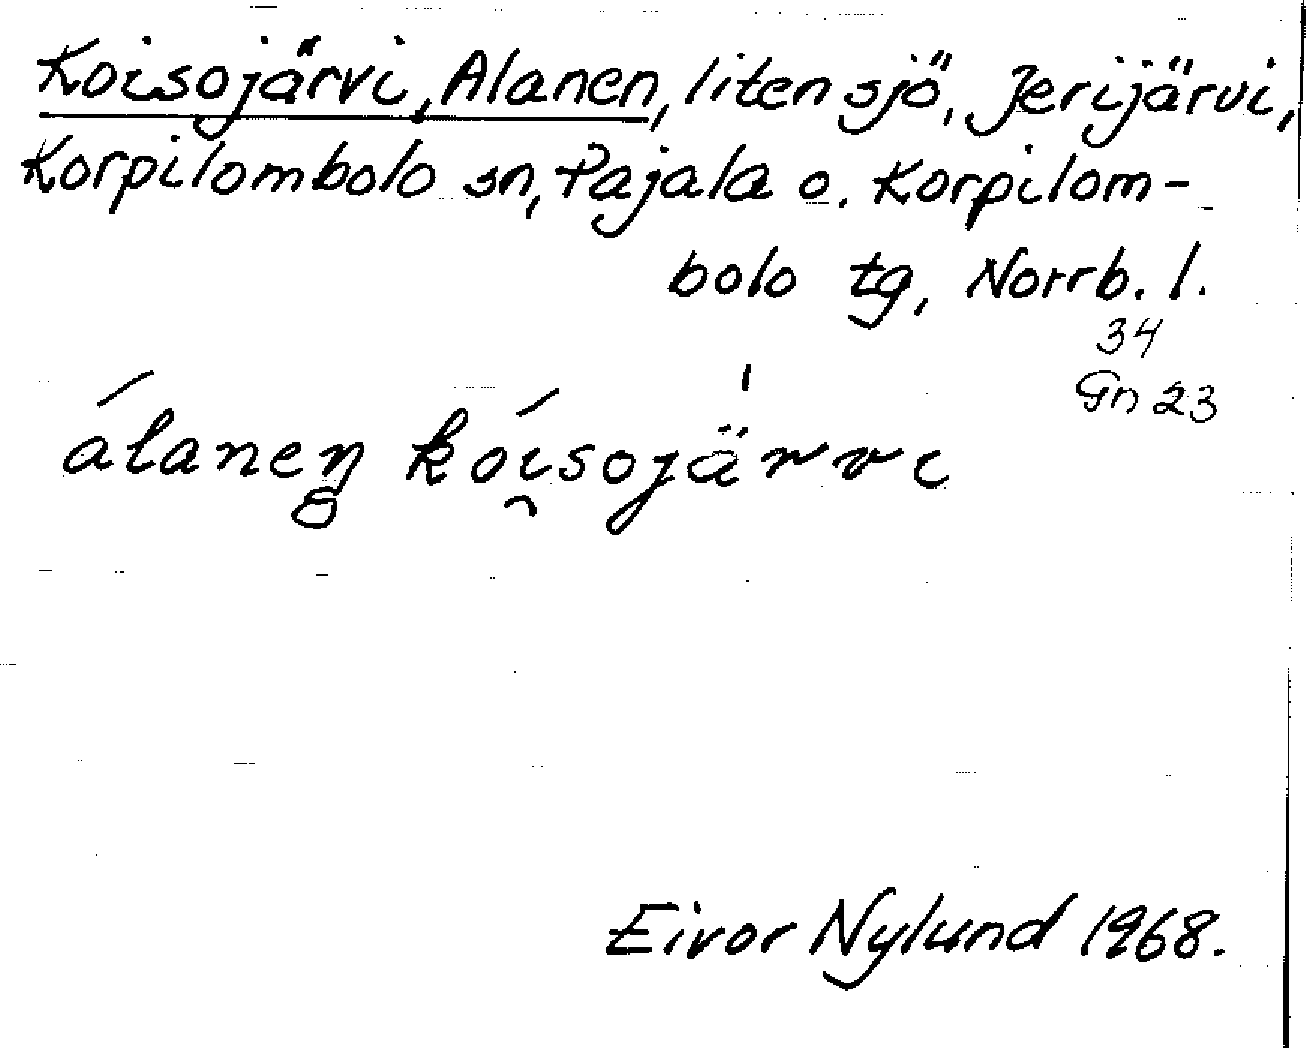 Koisojärvi, Alanen, liten sjö, Jerijärvi,
Korpilombolo sn, Pajala o. Korpilom-
bolo tg, Norrb. l.
34
Gn 23
álaneŋ kói̯sojärvi
Eivor Nylund 1968.